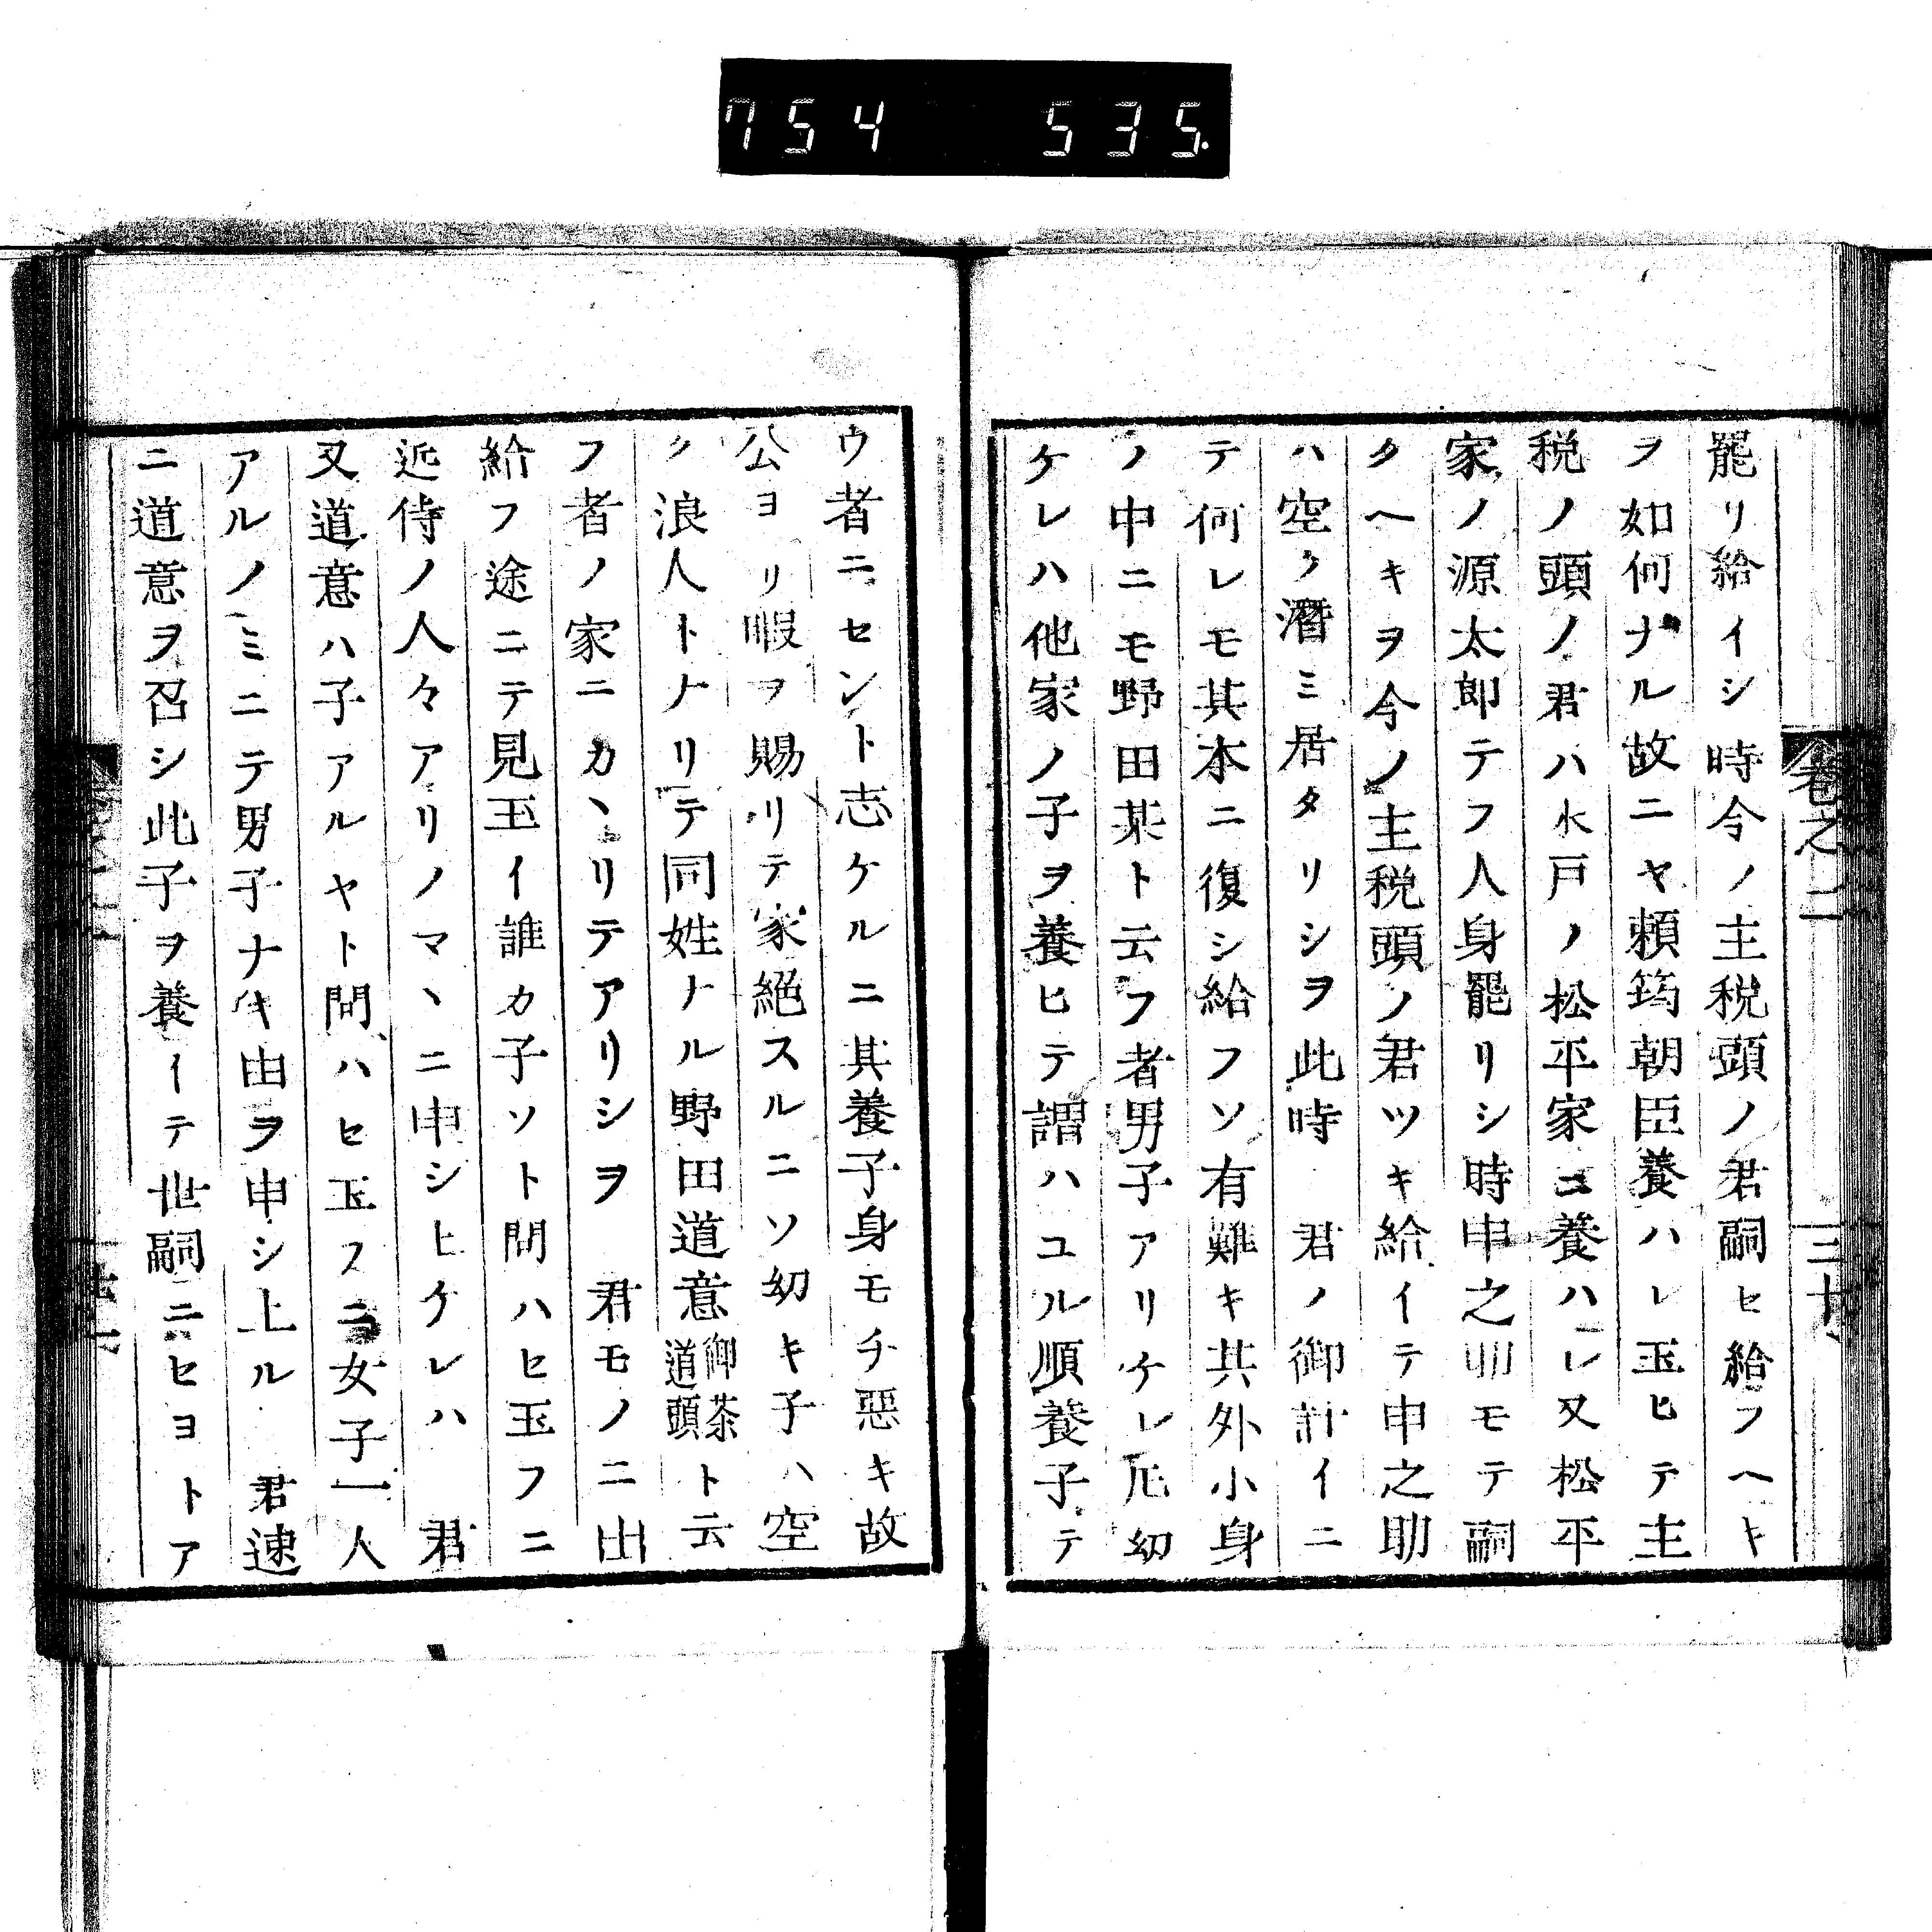 754 535.
卷之二
三十
罷リ給イシ時今ノ主税頭ノ君嗣ヒ給フヘキ
ヲ如何ナル故ニヤ頼筠朝臣養ハレ玉ヒテ主
税ノ頭ノ君ハ水戸ノ松平家ニ養ハレ又松平
家ノ源太郎テフ人身罷リシ時申之助モテ嗣
タヘキヲ今ノ主税頭ノ君ツキ給イテ申之助
ハ空ク潛ミ居タリシヲ此時 君ノ御計イニ
テ何レモ其本ニ復シ給フソ有難キ其外小身
ノ中ニモ野田某ト云フ者男子アリケレ𪜈幼
ケレハ他家ノ子ヲ養ヒテ謂ハユル順養子テ
ウ者ニセント志ケルニ其養子身モチ惡キ故
公ヨリ暇ヲ賜リテ家絶スルニソ幼キ子ハ空
ク浪人トナリテ同姓ナル野田道意御茶道頭ト云
フ者ノ家ニカヽリテアリシヲ 君モノニ出
給フ途ニテ見玉イ誰カ子ソト問ハヒ玉フニ
近侍ノ人々アリノマヽニ申シヒケレハ 君
又道意ハ子アルヤト問ハヒ玉フニ女子一人
アルノミニテ男子ナキ由ヲ申シ上ル 君逮
ニ道意ヲ召シ此子ヲ養イテ世嗣ニセヨトア